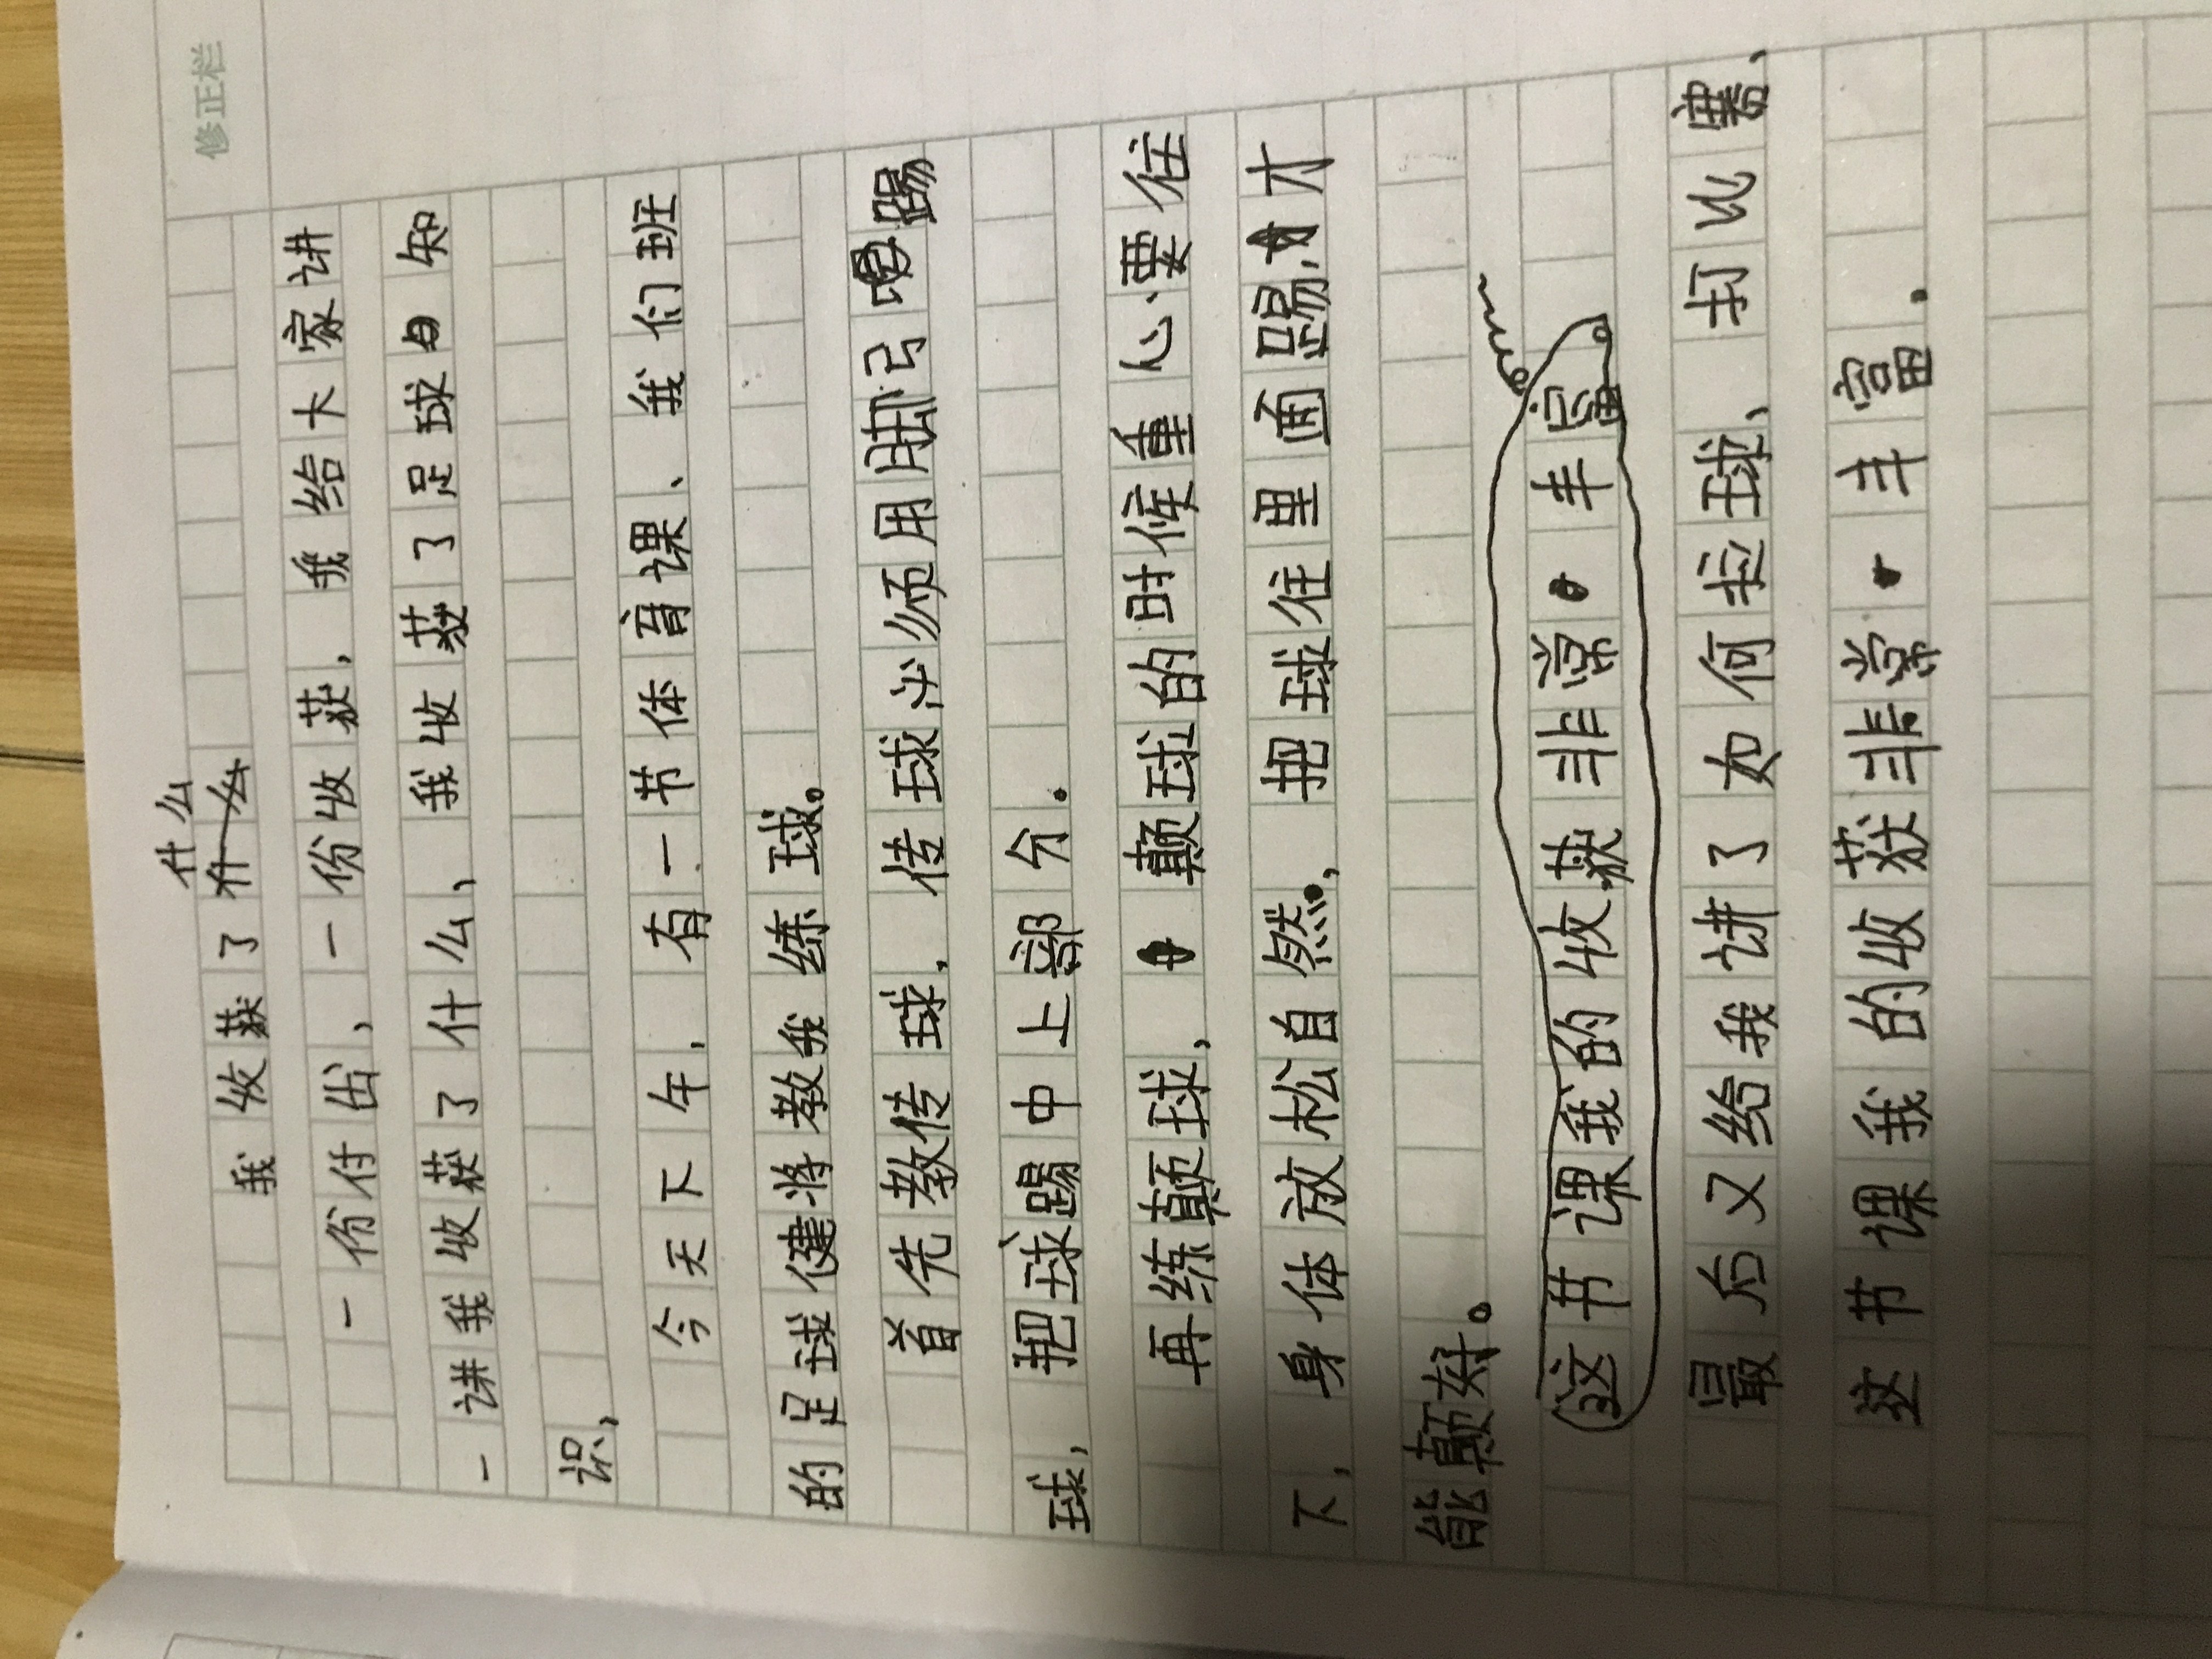 修正栏
什么
我收获了什么
一份付出、一份收获，我给大家讲
一讲我收获了什么、我收获了足球知
识、
今天下午，有一节体育课、我们班
的足球健将教我练球。
首先教传球，传球必须用脚弓踢
球，把球踢中上部分.
再练颠球，颠球的时候重心要往
下，身体放松自然，把球往里面踢,才
能颠好。
这节课我的收获非常丰富。
最后又给我讲了如何拉球、打比赛、
这节课我的收获非常丰富.